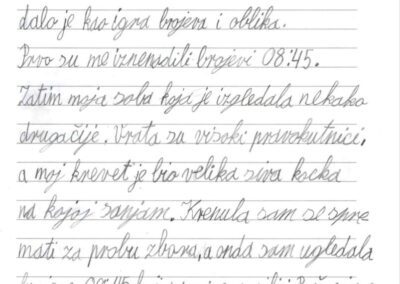 dalo je kao igra brojeva i oblika.
Prvo su me iznenadili brojevi 08:45.
Zatim moja soba koja je izgledala nekako
drugačije. Vrata su visoki pravokutnici,
a moj krevet je bio velika siva kocka
na kojoj sanjam. Krenula sam se spre
mati za probu zbora, a onda sam ugledala
08:45